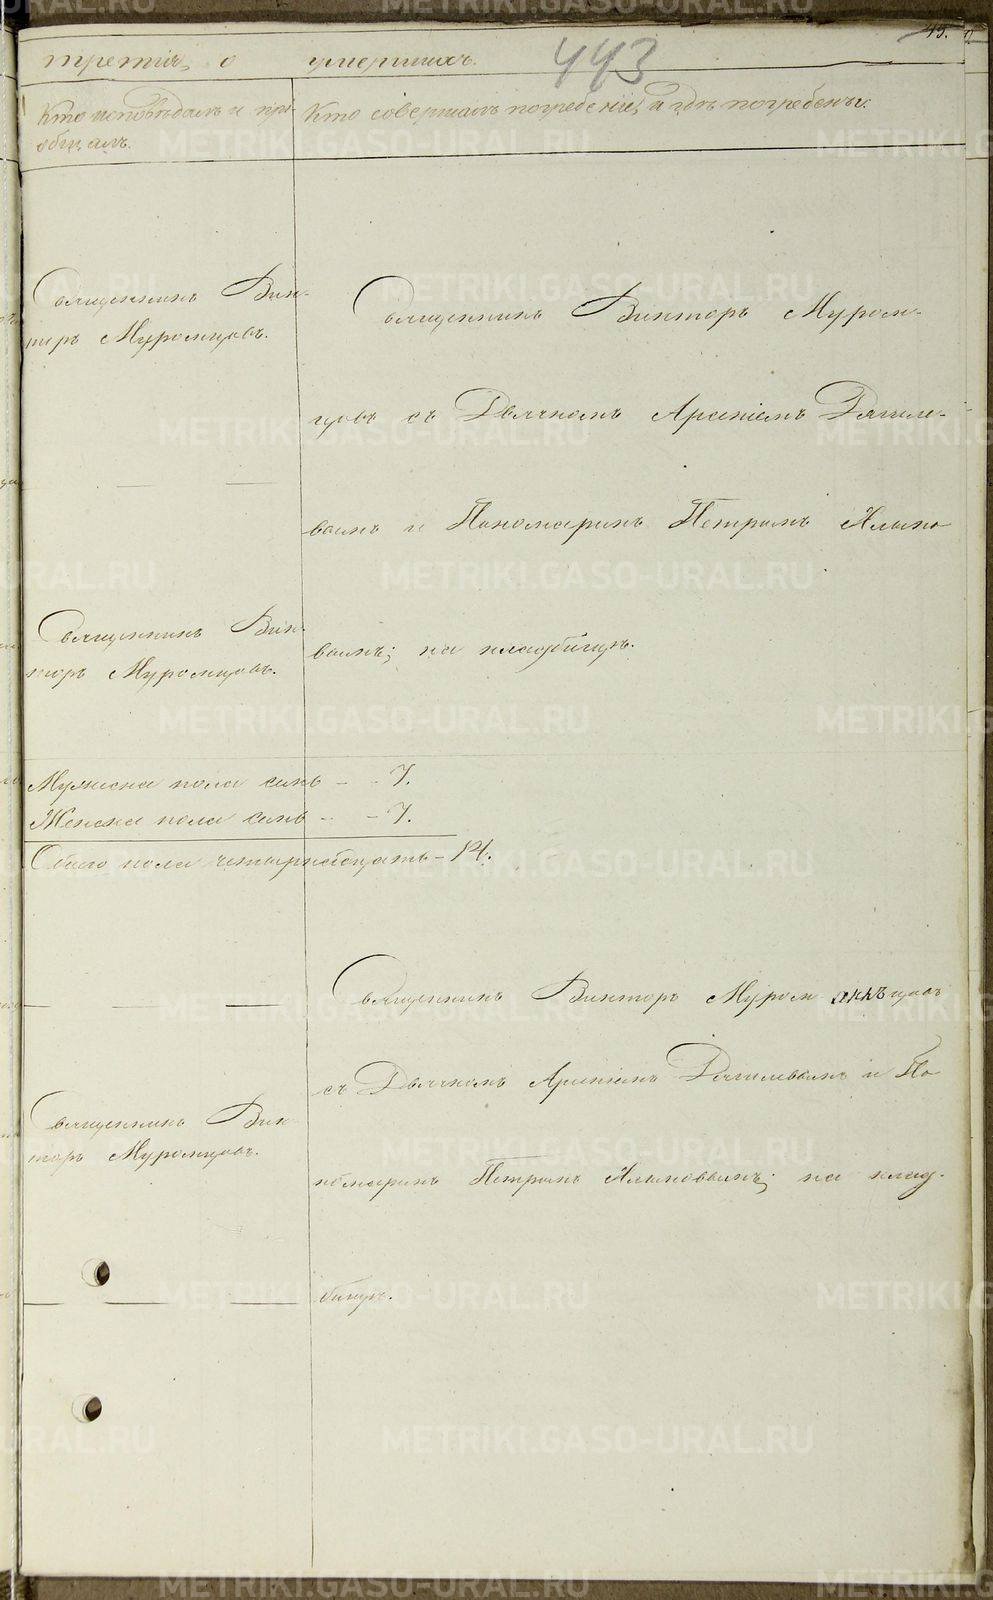 45.
443
третія, о умершихъ.
Кто исповѣдалъ и прі-
общалъ.
Кто совершалъ погребеніе, и гдѣ погребены.
Священникъ Вик-
торъ Муромцовъ.
Священникъ Викторъ Муром-
цовъ съ Дьячкомъ Арсеніемъ
вымъ и Пономаремъ Петромъ
вымъ; на кладбищѣ.
Священникъ Вик-
торъ Муромцовъ.
Мужеска пола семь - - 7.
Женска пола семь - - 7.
Обоего пола четырнадцать - 14.
Священникъ Викторъ Муром цовъ
съ Дьячкомъ Арсеніемъ и По
номаремъ Петромъ на клад-
бищѣ.
Священникъ Вик-
торъ Муромцовъ.
METRIKI.GASO-URAL.RU